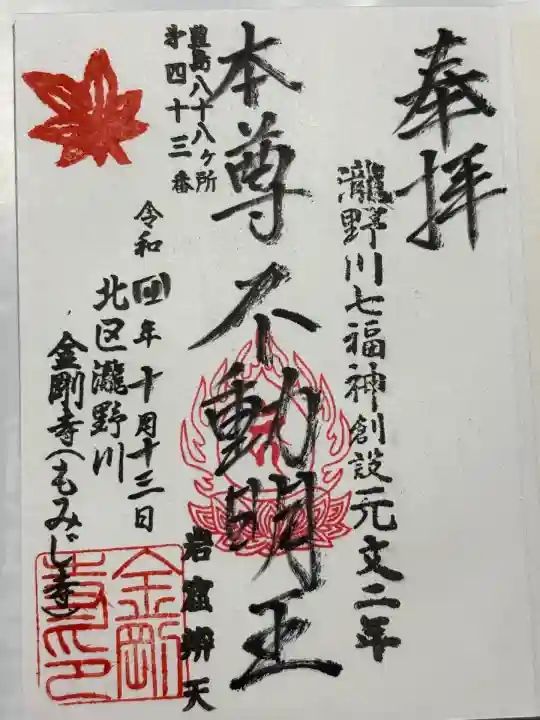 奉拝
瀧野川七福神創設元文二年
本尊不動明王
岩窟辨天
豊島八十八ヶ所
第四十三番
令和四年十月十三日
北区瀧野川
金剛寺(もみじ寺)
金剛
寺印